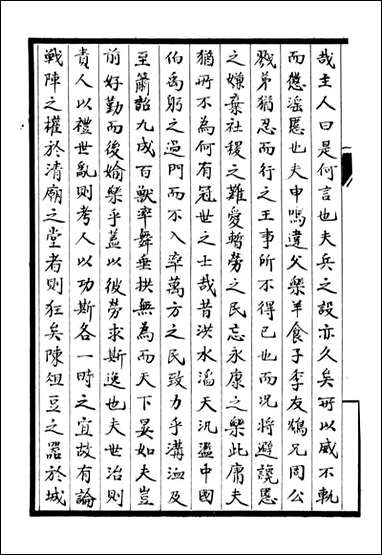 哉主人曰是何言也夫兵之設亦久矣所以威不軌
而懲滛慝也夫申鳴違父樂羊食子李友鴆兄周公
戮弟猶忍而行之王事所不得已也而况將避讒慝
之嫌棄社稷之難愛暫勞之民忘永康之樂此庸夫
猶所不為何有冠世之士哉昔洪水滔天汎濫中國
伯禹躬之過門而不入率萬方之民致力乎溝洫及
至簫韶九成百獸率舞垂拱無為而天下晏如夫豈
前好勤而後媮樂乎蓋以彼勞求斯逸也夫世治則
責人以禮世亂則考人以功斯各一時之宜故有論
戰陣之權於清廟之堂者則狂矣陳俎豆之器於城